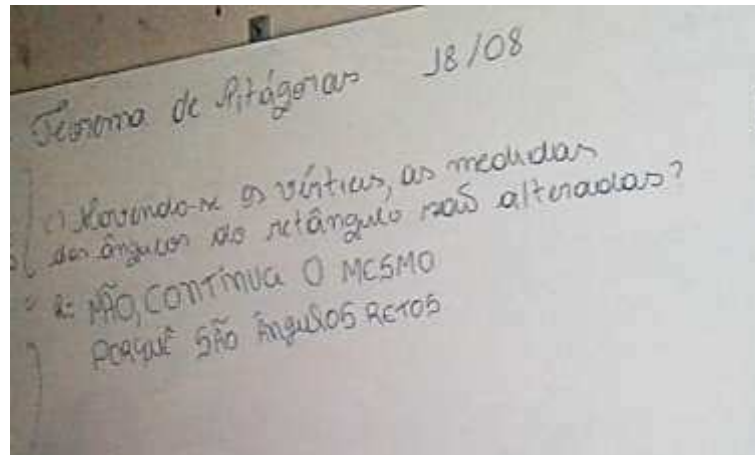 Teorema de Pitágoras 18/08
c) Movendo-se os vértices, as medidas
dos ângulos do retângulo são alteradas?
R: NÃO, CONTINUA O MESMO
PORQUÊ SÃO ÂNGULOS RETOS